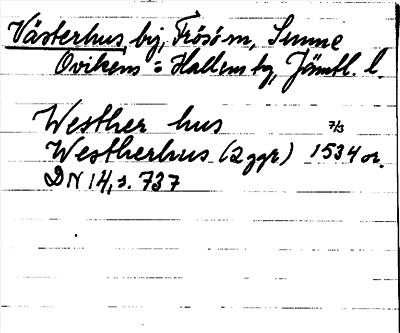 Västerhus, by, Frösö sn, Sunne
Ovikens o Hallens tg, Jämtl. l.
Westher hus 7/3
Westherhus (2 ggr) 1534 or.
DN 14, s. 737